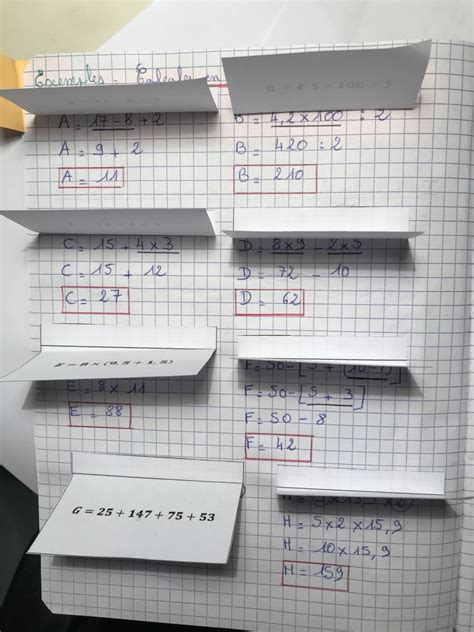 Exemples - Calculer en
A = 17 - 8 + 2
A = 9 + 2
A = 11
B = 4,2 × 100 : 2
B = 420 : 2
B = 210
C = 15 + 4 × 3
C = 15 + 12
C = 27
D = 8 × 9 - 2 × 5
D = 72 - 10
D = 62
E = 8 × 11
E = 88
F = 50 - [5 + (10 - 7)]
F = 50 - [5 + 3]
F = 50 - 8
F = 42
G = 25 + 147 + 75 + 53
H = 5 × 2 × 15,9
H = 10 × 15,9
H = 159